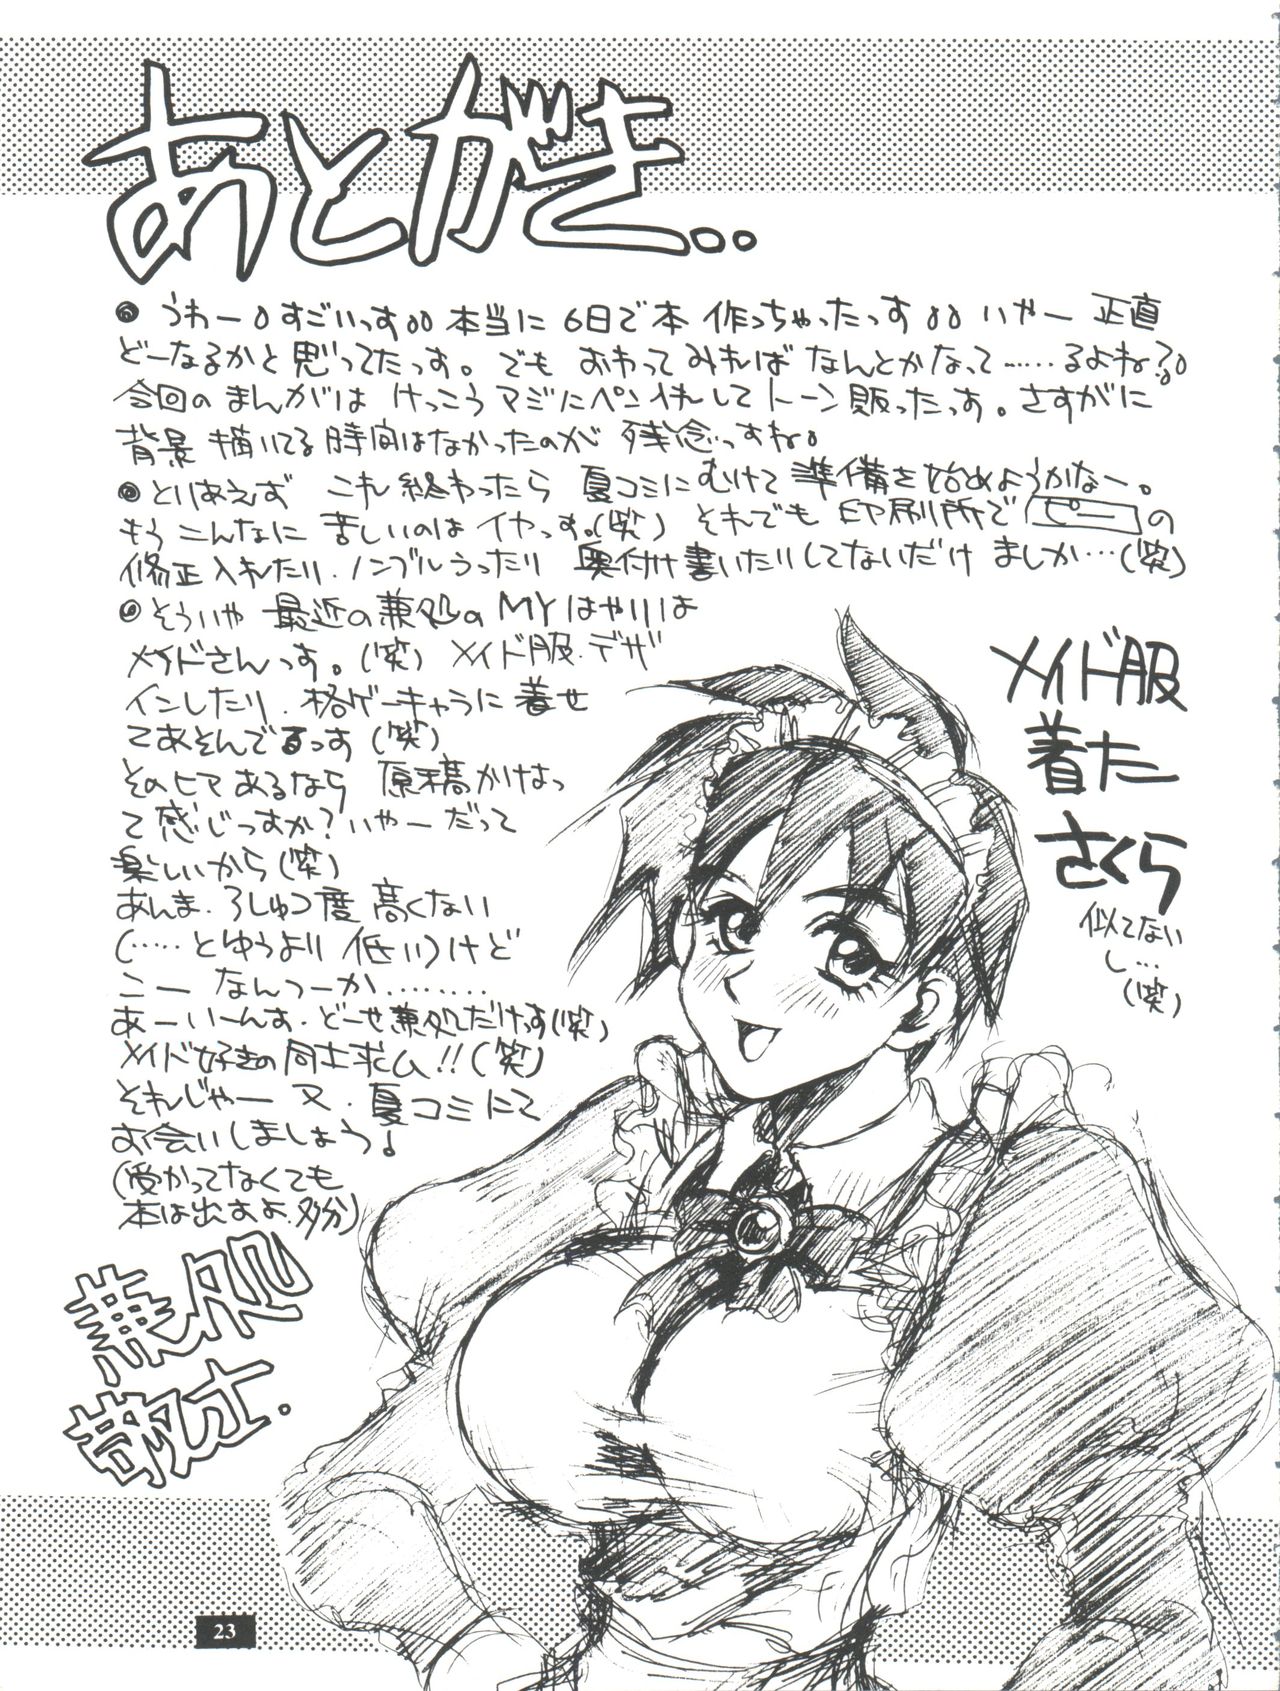 あとがき..
◎うわー○すごいっす○○本当に6日で本作っちゃったっす○○いやー正直
どーなるかと思ってたっす。でもおわってみればなんとかなって……るよね?○○
今回のまんがはけっこうマジにペン入れしてトーン販ったっす。さすがに
背景描いてる時間はなかったのが残念っすね。
◎とりあえずこれ終わったら夏コミにむけて準備を始めようかなー。
もうこんなに苦しいのはイヤっす。(笑)それでも印刷所でピーの
修正入れたり、ノンブルうったり奥付け書いたりしてないだけましか…(笑)
◎そういや最近の兼処のMYはやりは
メイドさんっす。(笑)メイド服デザ
インしたり、格ゲーキャラに着せ
てあそんでるっす(笑)
そのヒマあるなら原稿かけなっ
て感じっすか?いやーだって
楽しいから(笑)
あんま、ろしゅつ度高くない
(……とゆうより低い)けど
こーなんつーか………
あーいーんす、どーせ兼処だけっす(笑)
メイド好きの同士求ム!!(笑)
それじゃー又、夏コミにて
お会いしましょう!
(受かってなくても
本は出すよ、多分)
兼処
敬士.
メイド服
着た
さくら
似てない
し…
(笑)
23